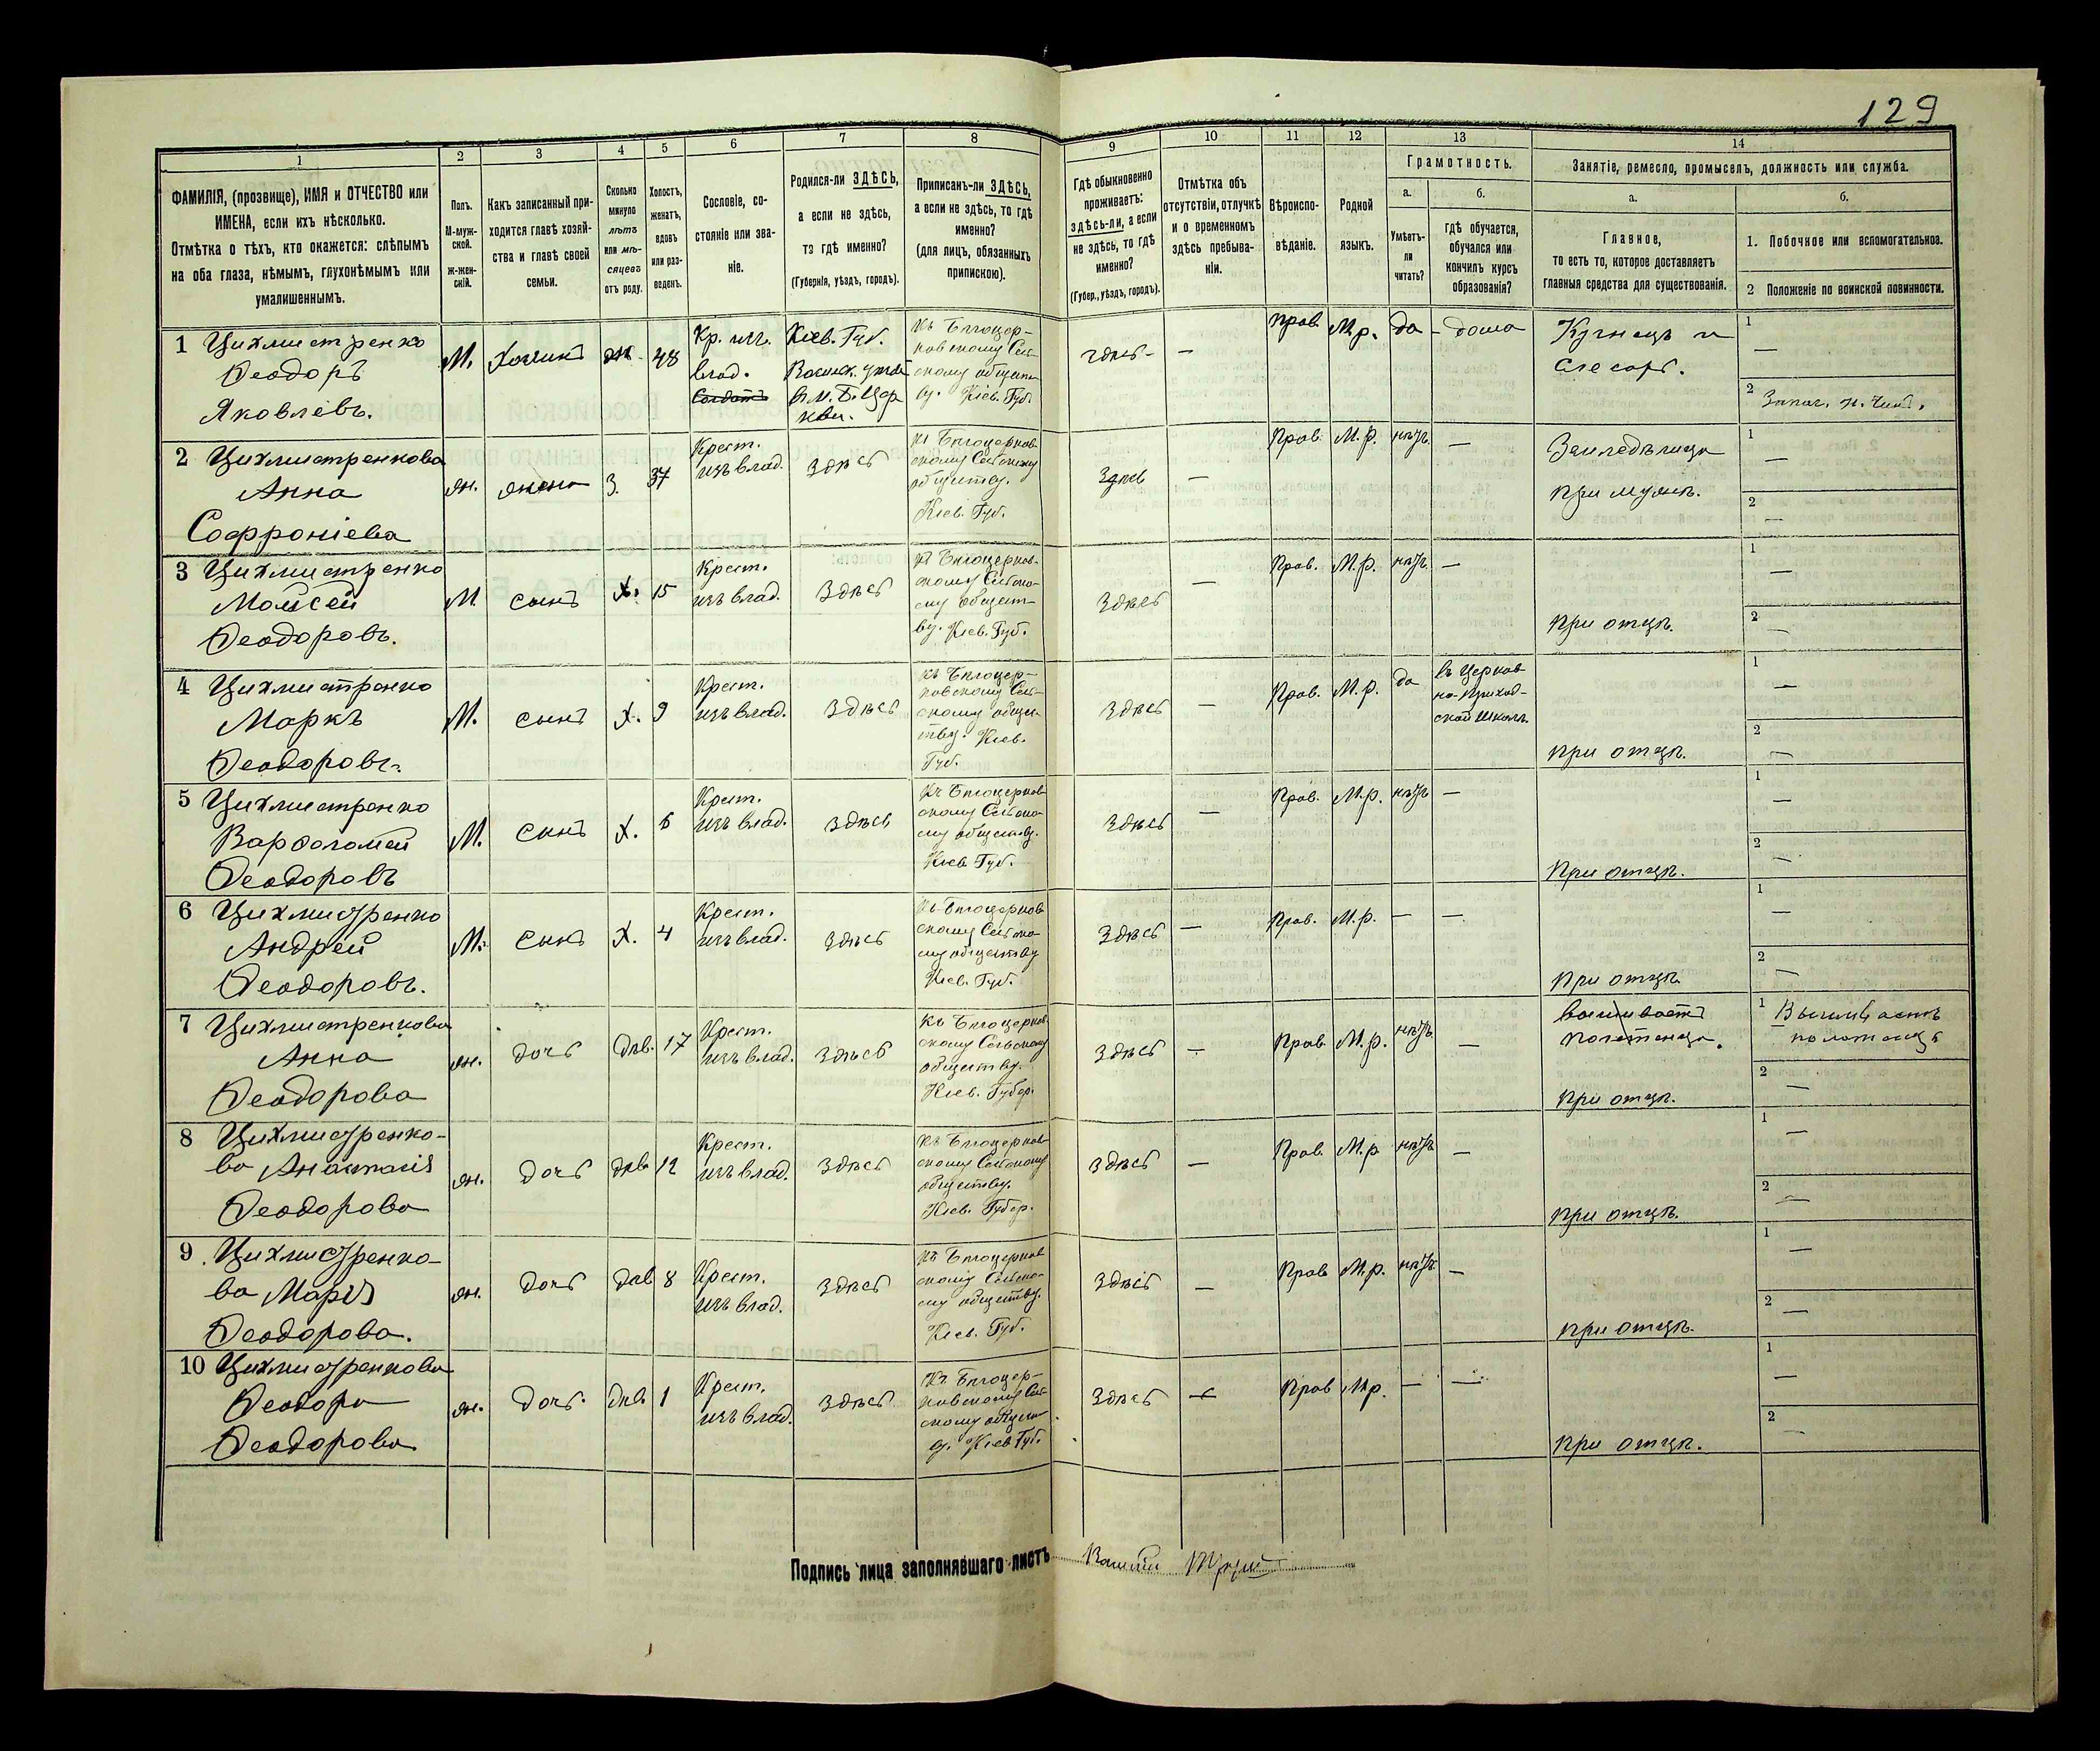 129
1
2
3
4
5
6
7
8
9
10
11
12
13
14
ФАМИЛІЯ, (прозвище), ИМЯ и ОТЧЕСТВО или
ИМЕНА, если ихъ нѣсколько.
Отмѣтка о тѣхъ, кто окажется: слѣпымъ
на оба глаза, нѣмымъ, глухонѣмымъ или
умалишеннымъ.
Полъ.
М-муж-
ской.
ж-жен-
скій.
Какъ записанный при-
ходится главѣ хозяй-
ства и главѣ своей
семьи.
Сколько
минуло
лѣтъ
или мѣ-
сяцевъ
отъ роду.
Холостъ,
женатъ,
вдовъ
или раз-
веденъ.
Сословіе, со-
стояніе или зва-
ніе.
Родился-ли ЗДѢСЬ,
а если не здѣсь,
тз гдѣ именно?
(Губернія, уѣздъ, городъ).
Приписанъ-ли ЗДѢСЬ,
а если не здѣсь, то гдѣ
именно?
(для лицъ, обязанныхъ
припискою).
Гдѣ обыкновенно
проживаетъ:
здѣсь-ли, а если
не здѣсь, то гдѣ
именно?
(Губер., уѣздъ, городъ).
Отмѣтка объ
отсутствіи, отлучкѣ
и о временномъ
здѣсь пребыва-
ніи.
Вѣроиспо-
вѣданіе.
Родной
языкъ.
Грамотность.
а.
Умѣетъ-
ли
читать?
б.
гдѣ обучается,
обучался или
кончилъ курсъ
образованія?
Занятіе, ремесло, промыселъ, должность или служба.
а.
Главное,
то есть то, которое доставляетъ
главныя средства для существованія.
б.
1. Побочное или вспомогательное.
2 Положеніе по воинской повинности.
1 Цихмистренко
Ѳеодоръ
Яковлевъ.
М. хозяинъ ж. 48
Кр. изъ
влад.
Солдатъ
Кіев. Губ.
Васильк. уѣзд
в м. Б. Цер
кви.
Къ Бѣлоцер-
ковскому Сель-
скому общест-
ву. Кіев. Губ.
здѣсь — Прав. М.р. да — дома
Кузнецъ и
слесарь.
1 —
2 Запас. н. чинъ.
2 Цихмистренкова
Анна
Софроніева
ж. жена З. 37
Крест.
изъ влад.
Здѣсь
Къ Бѣлоцерков-
скому Сельскому
обществу.
Кіев. Губ.
Здѣсь — Прав. М.р. нѣтъ —
Земледѣлица
при мужѣ.
1 —
2 —
3 Цихмистренко
Мойсей
Ѳеодоровъ.
М. сынъ х. 15
Крест.
изъ влад.
Здѣсь
Къ Бѣлоцерков-
скому Сельско-
му общест-
ву. Кіев. Губ.
Здѣсь — Прав. М.р. нѣтъ —
при отцѣ.
1 —
2 —
4 Цихмистренко
Маркъ
Ѳеодоровъ.
М. сынъ х. 9
Крест.
изъ влад.
Здѣсь
Къ Бѣлоцер-
ковскому Сель-
скому общес-
тву. Кіев.
Губ.
Здѣсь — Прав. М.р. да
въ Церков
но-Приход-
ской школѣ
при отцѣ.
1 —
2 —
5 Цихмистренко
Варѳоломей
Ѳеодоровъ
М. сынъ х. 6
Крест.
изъ влад.
Здѣсь
Къ Бѣлоцерков-
скому Сельско-
му обществу.
Кіев. Губ.
Здѣсь — Прав. М.р. нѣтъ —
При отцѣ.
1 —
2 —
6 Цихмистренко
Андрей
Ѳеодоровъ.
М. сынъ х. 4
Крест.
изъ влад.
Здѣсь
Къ Бѣлоцерков-
скому Сельско-
му обществу
Кіев. Губ.
Здѣсь — Прав. М.р. — —
при отцѣ
1 —
2 —
7 Цихмистренкова
Анна
Ѳеодорова
ж. дочь дѣв. 17
Крест.
изъ влад.
Здѣсь
Къ Бѣлоцерков-
скому Сельскому
обществу.
Кіев. Губер.
Здѣсь — Прав. М.р. нѣтъ —
вышиваетъ
полотенца.
при отцѣ.
1 Вышиваетъ
полотенца
2 —
8 Цихмистренко-
ва Анастасія
Ѳеодорова
ж. дочь дѣв 12
Крест.
изъ влад.
Здѣсь
Къ Бѣлоцерков-
скому Сельскому
обществу.
Кіев. Губер.
Здѣсь — Прав. М.р. нѣтъ —
при отцѣ.
1 —
2 —
9 Цихмистренко-
ва Марія
Ѳеодорова.
ж. дочь дѣв 8
Крест.
изъ влад.
Здѣсь
Къ Бѣлоцерков
скому Сельско-
му обществу.
Кіев. Губ.
Здѣсь — Прав М.р. нѣтъ —
при отцѣ.
1 —
2 —
10 Цихмистренкова
Ѳеодора
Ѳеодорова.
ж. дочь. дѣв. 1
Крест.
изъ влад.
Здѣсь
Къ Бѣлоцер-
ковскому Сель-
скому обществ
у. Кіев Губ.
Здѣсь — Прав М.р. — —
при отцѣ.
1 —
2 —
Подпись лица заполнявшаго листъ